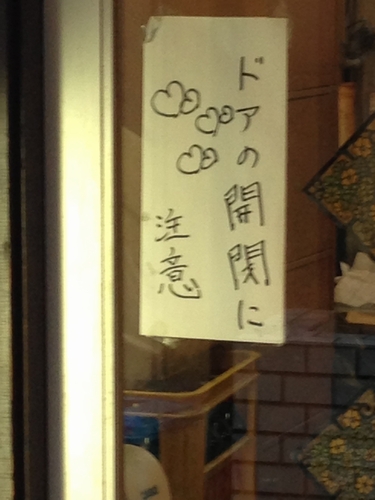 ドアの開閉に
注意